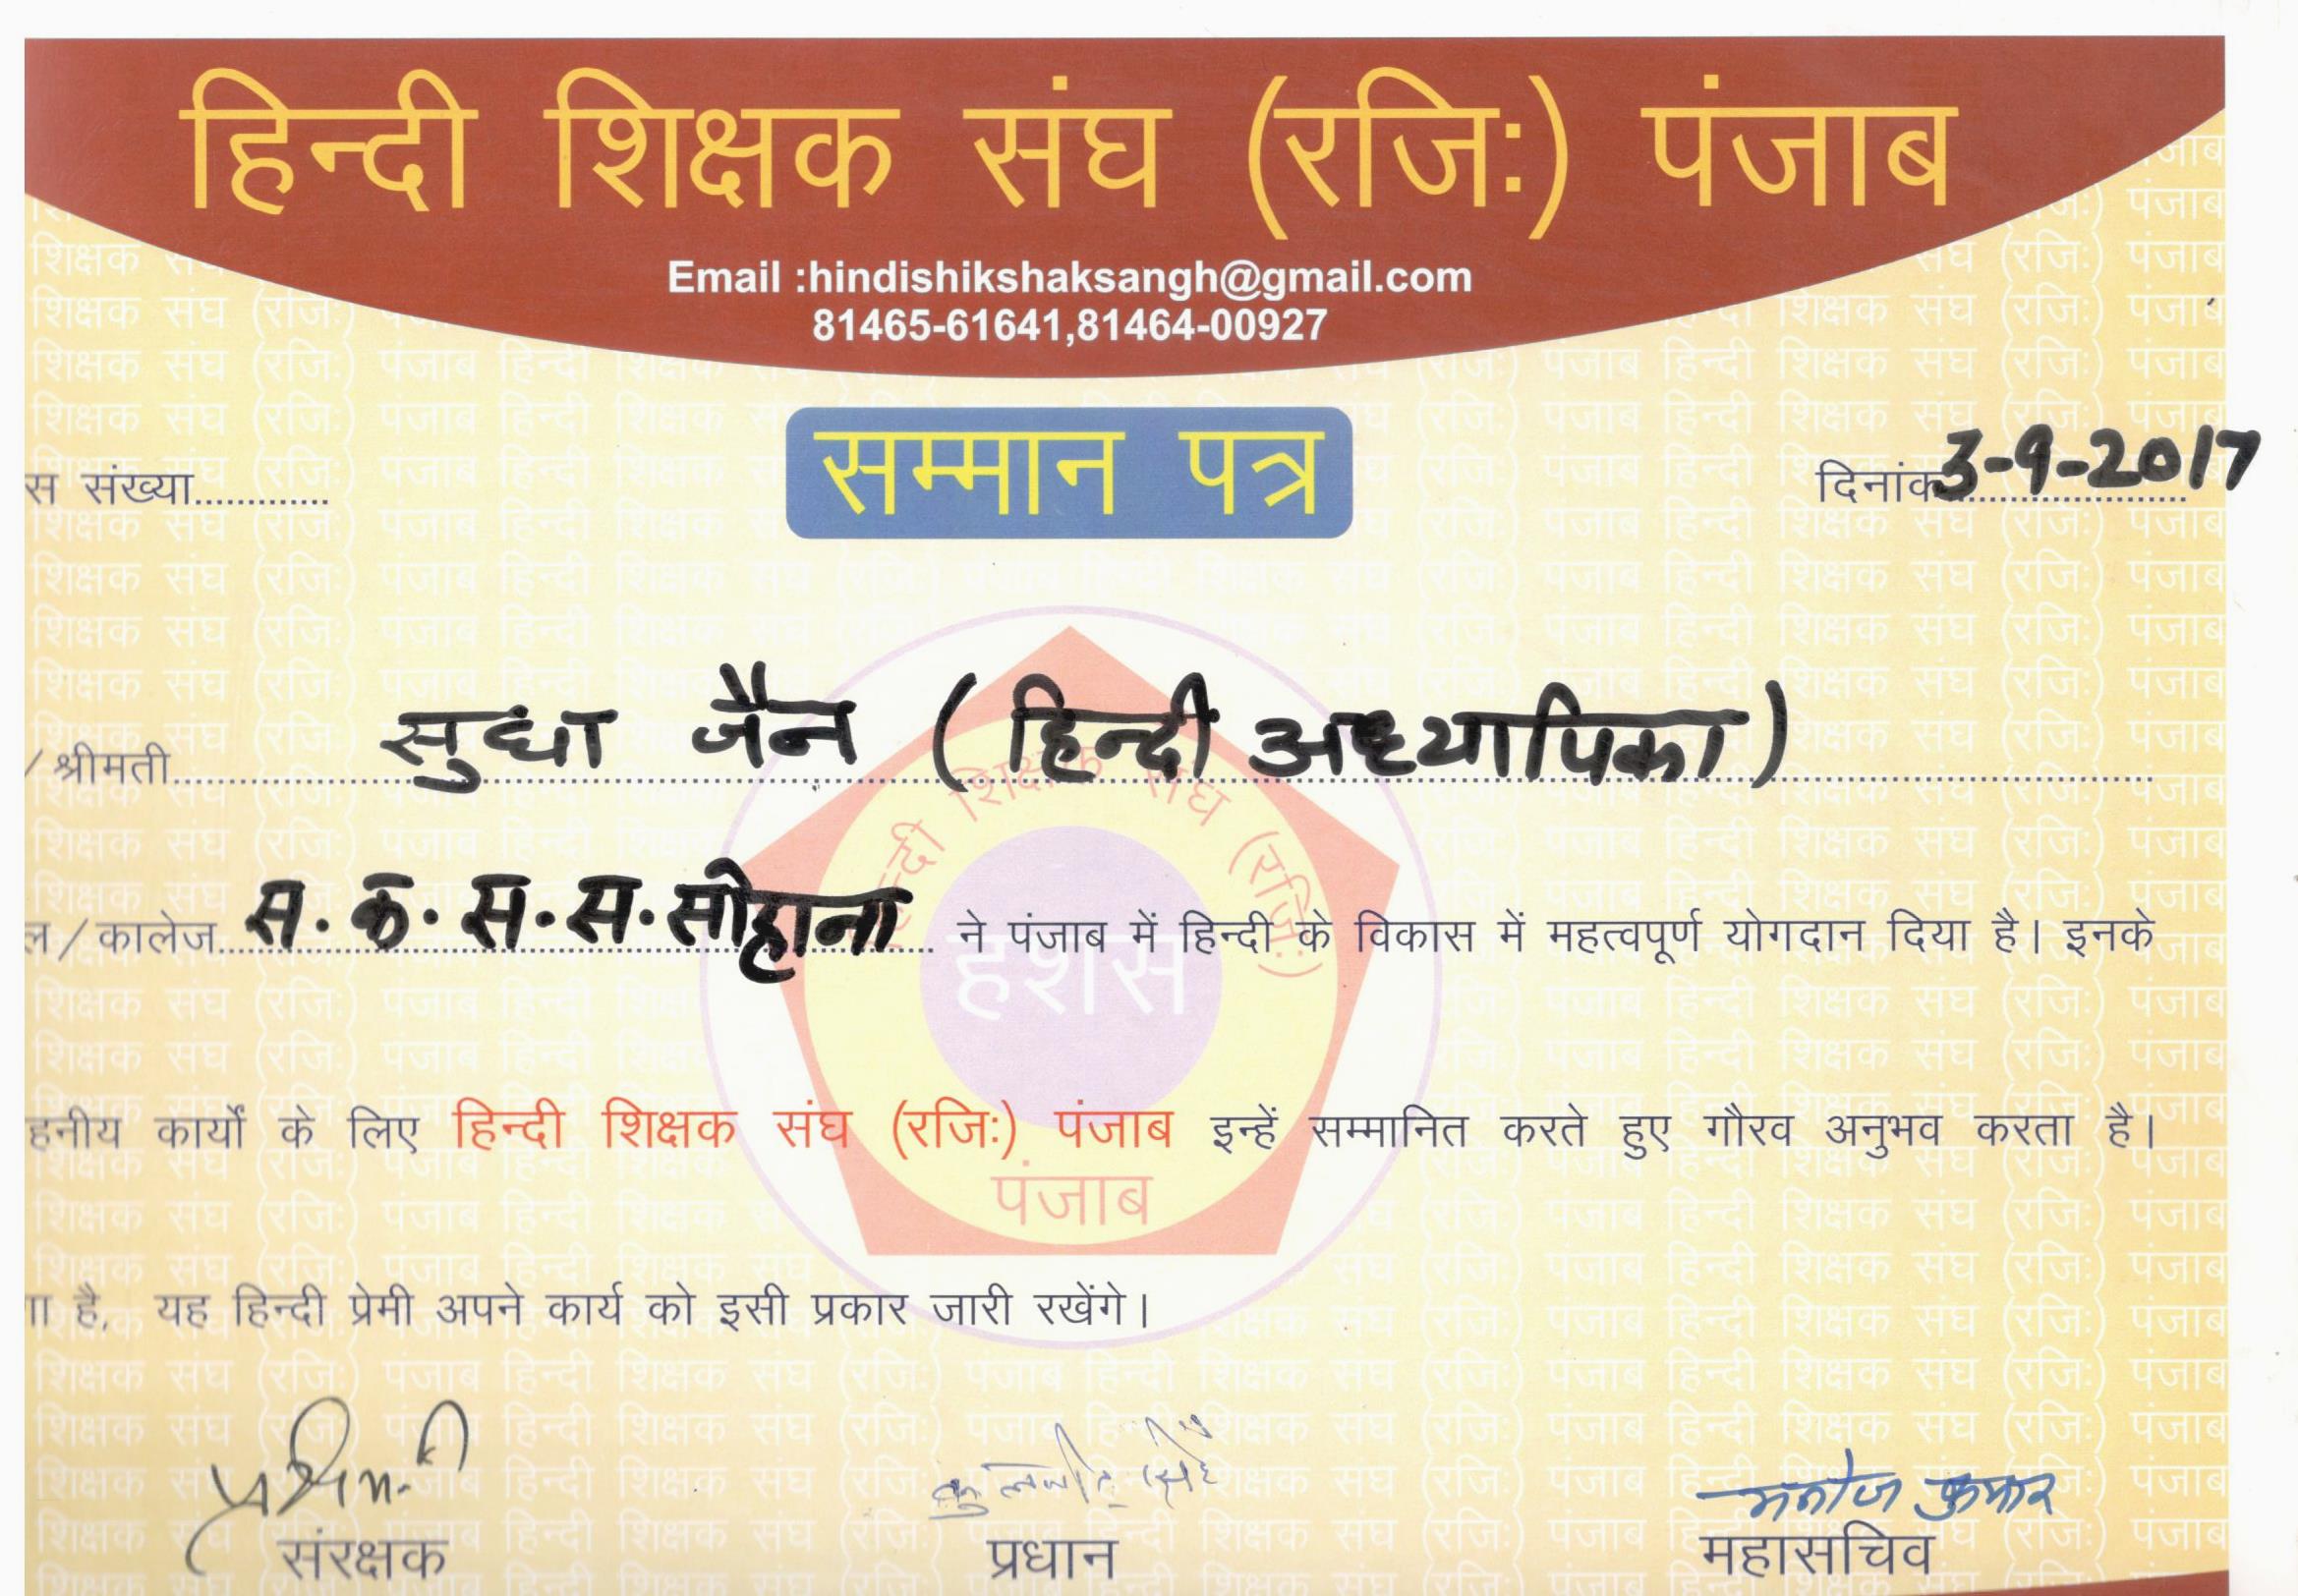 हिन्दी शिक्षक संघ (रजिः) पंजाब
Email :hindishikshaksangh@gmail.com
81465-61641,81464-00927
सम्मान पत्र
स संख्या............. दिनांक 3-9-2017
/ श्रीमती सुधा जैन ( हिन्दी अध्यापिका )
ल / कालेज स. क. स. स. सोहाना ने पंजाब में हिन्दी के विकास में महत्वपूर्ण योगदान दिया है। इनके
हनीय कार्यों के लिए हिन्दी शिक्षक संघ (रजिः) पंजाब इन्हें सम्मानित करते हुए गौरव अनुभव करता है।
ा है, यह हिन्दी प्रेमी अपने कार्य को इसी प्रकार जारी रखेंगे।
हिन्दी शिक्षक संघ (रजिः)
हशिस
पंजाब
मनोज कुमार
संरक्षक प्रधान महासचिव